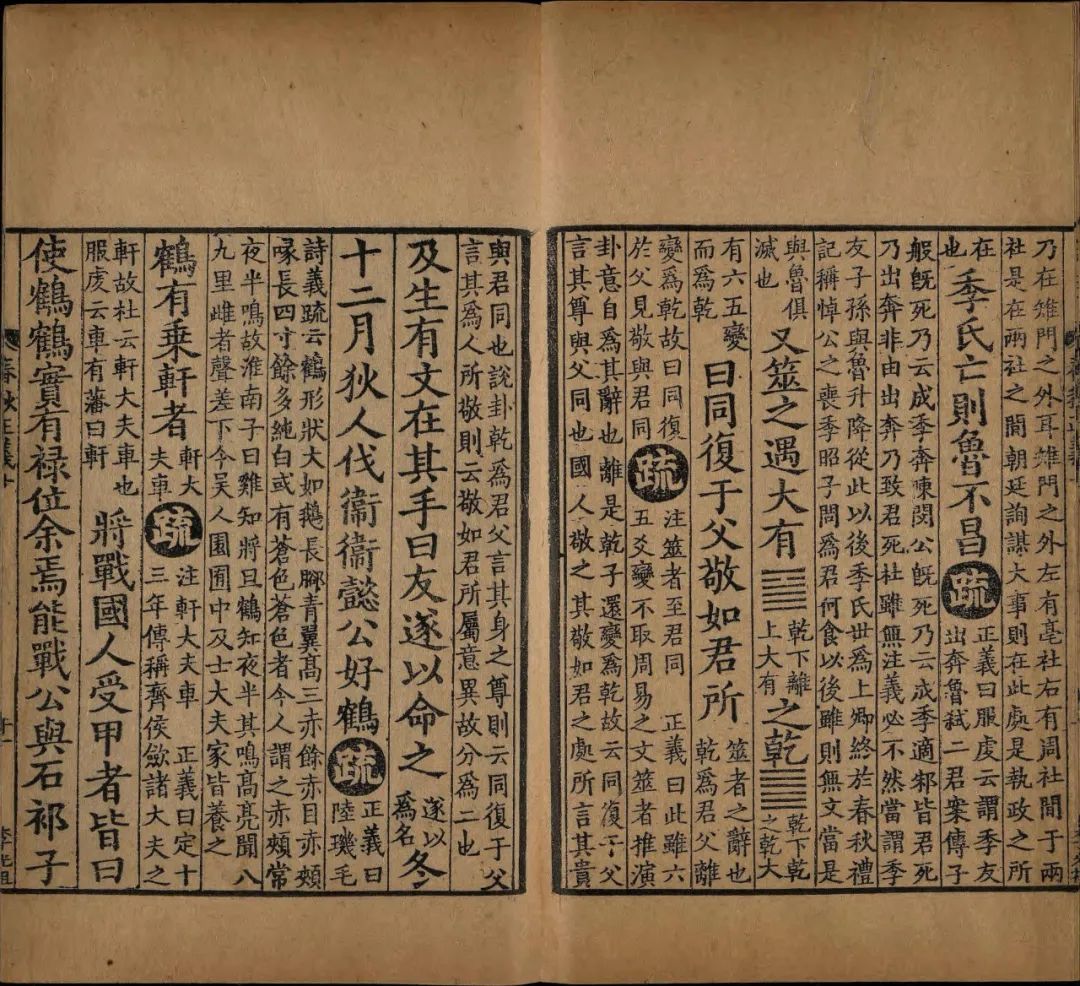 乃在雉門之外耳雉門之外左有亳社右有周社間于兩
社是在兩社之間朝廷詢謀大事則在此處是執政之所
在
也
季氏亡則魯不昌
疏
正義曰服虔云謂季友
出奔魯弒二君案傳子
般旣死乃云成季奔陳閔公旣死乃云成季適邾皆君死
乃出奔非由出奔乃致君死杜雖無注義必不然當謂季
友子孫與魯升降從此以後季氏世爲上卿終於春秋禮
記稱悼公之喪季昭子問爲君何食以後雖則無文當是
與魯俱
滅也
又筮之遇大有
乾下離
上大有
之乾
乾下乾
之乾大
有六五變
而爲乾
曰同復于父敬如君所
筮者之辭也
乾爲君父離
變爲乾故曰同復
於父見敬與君同
疏
注筮者至君同 正義曰此雖六
五爻變不取周易之文筮者推演
卦意自爲其辭也離是乾子還變爲乾故云同復于父
言其尊與父同也國人敬之其敬如君之處所言其貴
與君同也說卦乾爲君父言其身之尊則云同復于父
言其爲人所敬則云敬如君所屬意異故分爲二也
及生有文在其手曰友遂以命之
遂以
爲名
冬
十二月狄人伐衞衞懿公好鶴
疏
正義曰
陸璣毛
詩義疏云鶴形狀大如鵝長腳青翼高三赤餘赤目赤頰
喙長四寸餘多純白或有蒼色蒼色者今人謂之赤頰常
夜半鳴故淮南子曰雞知將旦鶴知夜半其鳴高亮聞八
九里雌者聲差下今吳人園囿中及士大夫家皆養之
鶴有乗軒者
軒大
夫車
疏
注軒大夫車 正義曰定十
三年傳稱齊侯斂諸大夫之
軒故杜云軒大夫車也
服虔云車有藩曰軒
將戰國人受甲者皆曰
使鶴鶴實有祿位余焉能戰公與石祁子
春秋正義十
十一